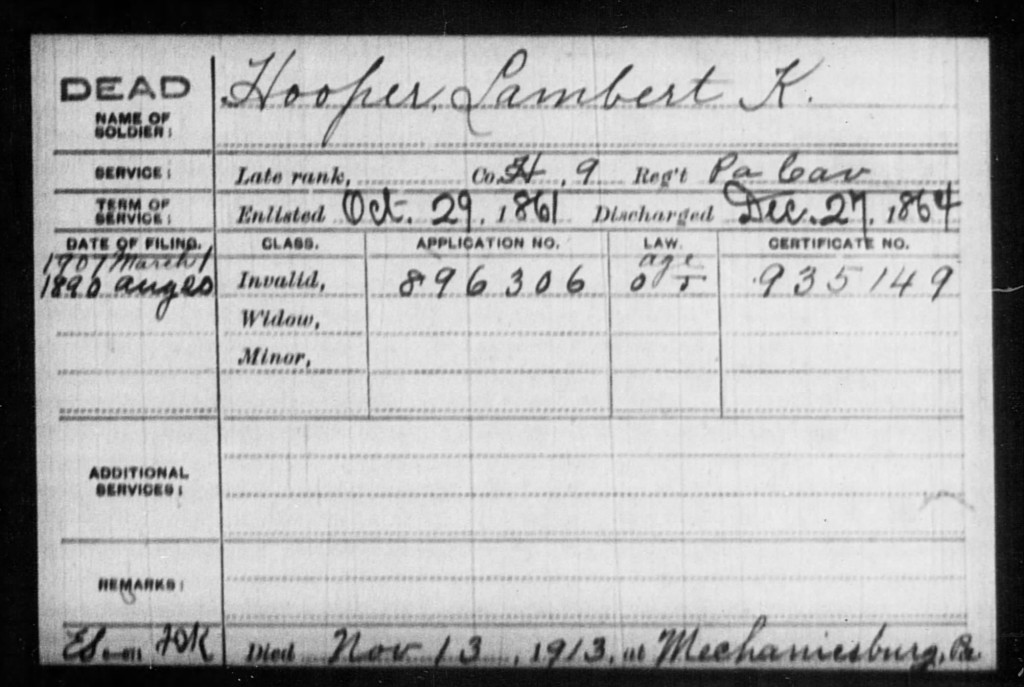 DEAD
NAME OF SOLDIER:
Hooper, Lambert K.
SERVICE: Late rank, Co. H, 9 Reg't Pa Cav
TERM OF SERVICE: Enlisted Oct. 29, 1861 Discharged Dec. 27, 1864
DATE OF FILING. CLASS. APPLICATION NO. LAW. CERTIFICATE NO.
1907 March 1 age
1890 Invalid, 896306 935149
Widow,
Minor,
ADDITIONAL SERVICES:
REMARKS:
Died Nov 13, 1913, at Mechanicsburg, Pa